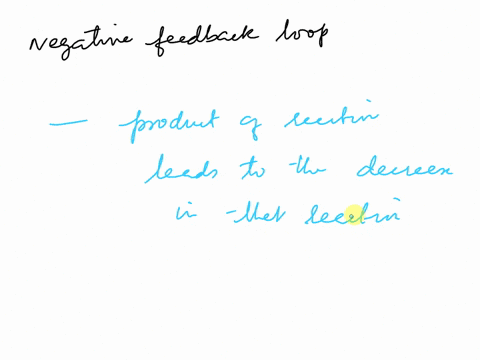 negative feedback loop
— product of reaction
leads to the decrease
in that reaction